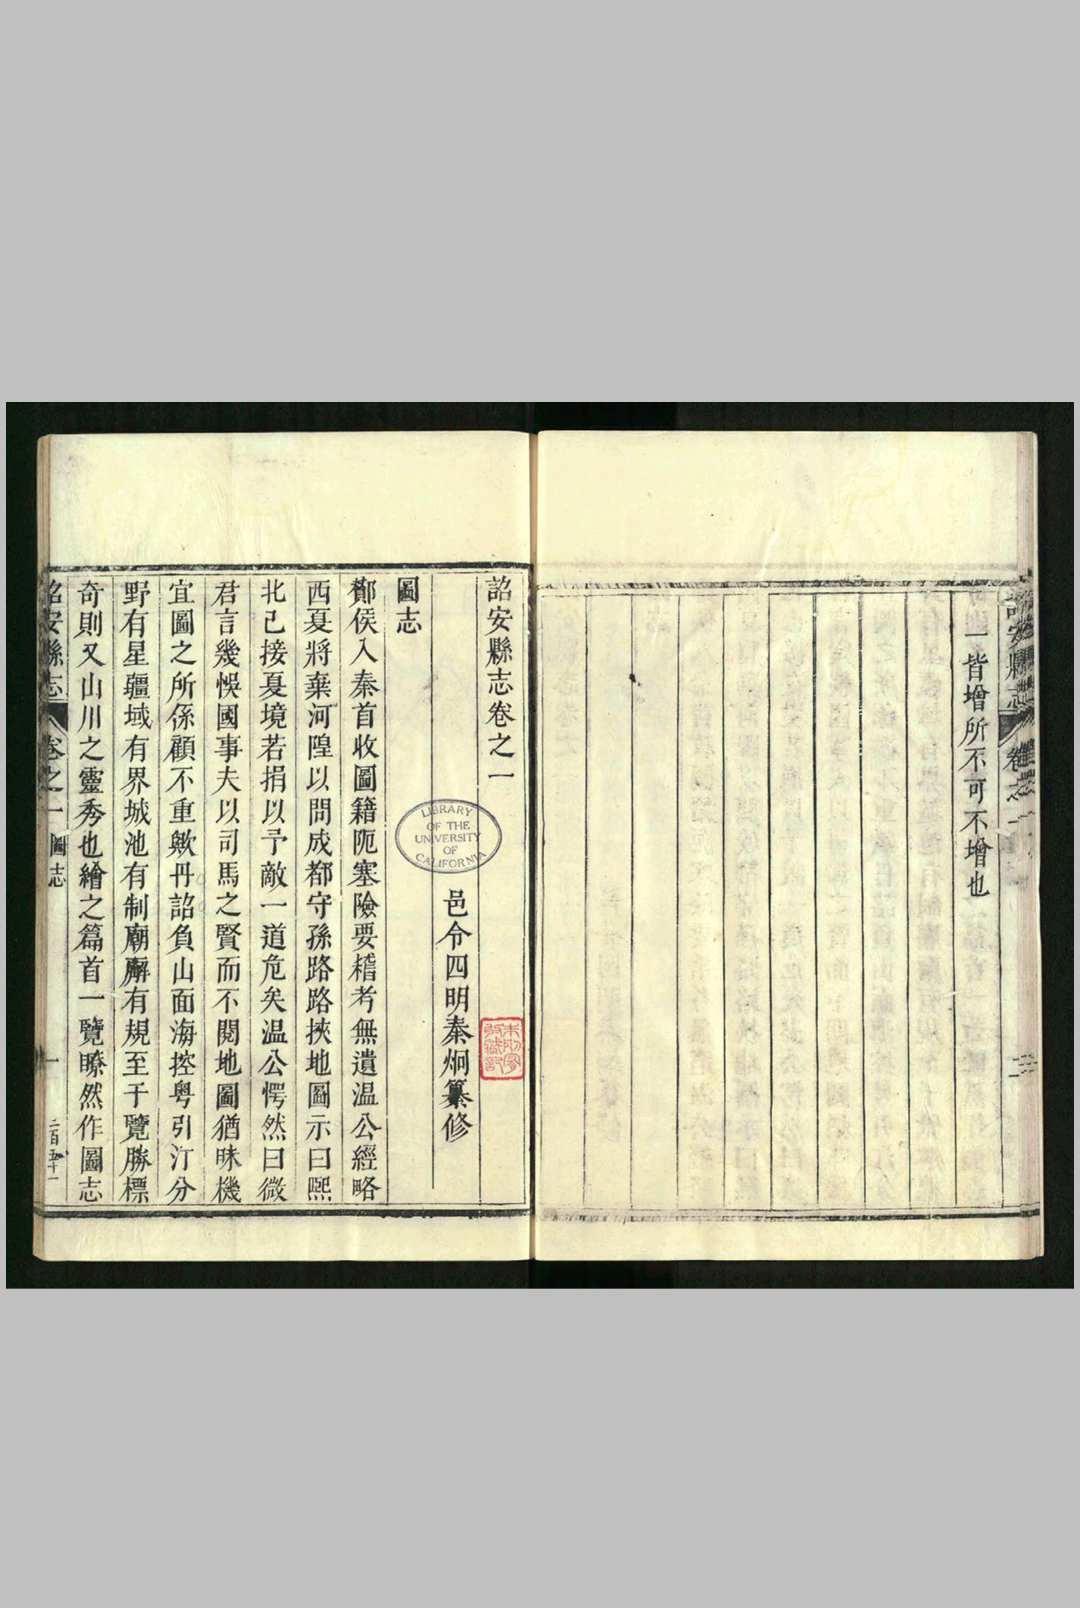 一皆增所不可不增也
詔安縣志卷之一
邑令四明秦炯纂修
圖志
酇侯入秦首收圖籍阨塞險要稽考無遺温公經略
西夏將棄河隍以問成都守孫路路挾地圖示曰熙
北已接夏境若捐以予敵一道危矣温公愕然曰微
君言幾悞國事夫以司馬之賢而不閱地圖猶昧機
宜圖之所係顧不重歟丹詔負山面海控粤引汀分
野有星疆域有界城池有制廟廨有規至于覽勝標
奇則又山川之靈秀也繪之篇首一覽瞭然作圖志
詔安縣志 卷之一 圖志 一 二百五十一
LIBRARY
OF THE
UNIVERSITY
OF
CALIFORNIA